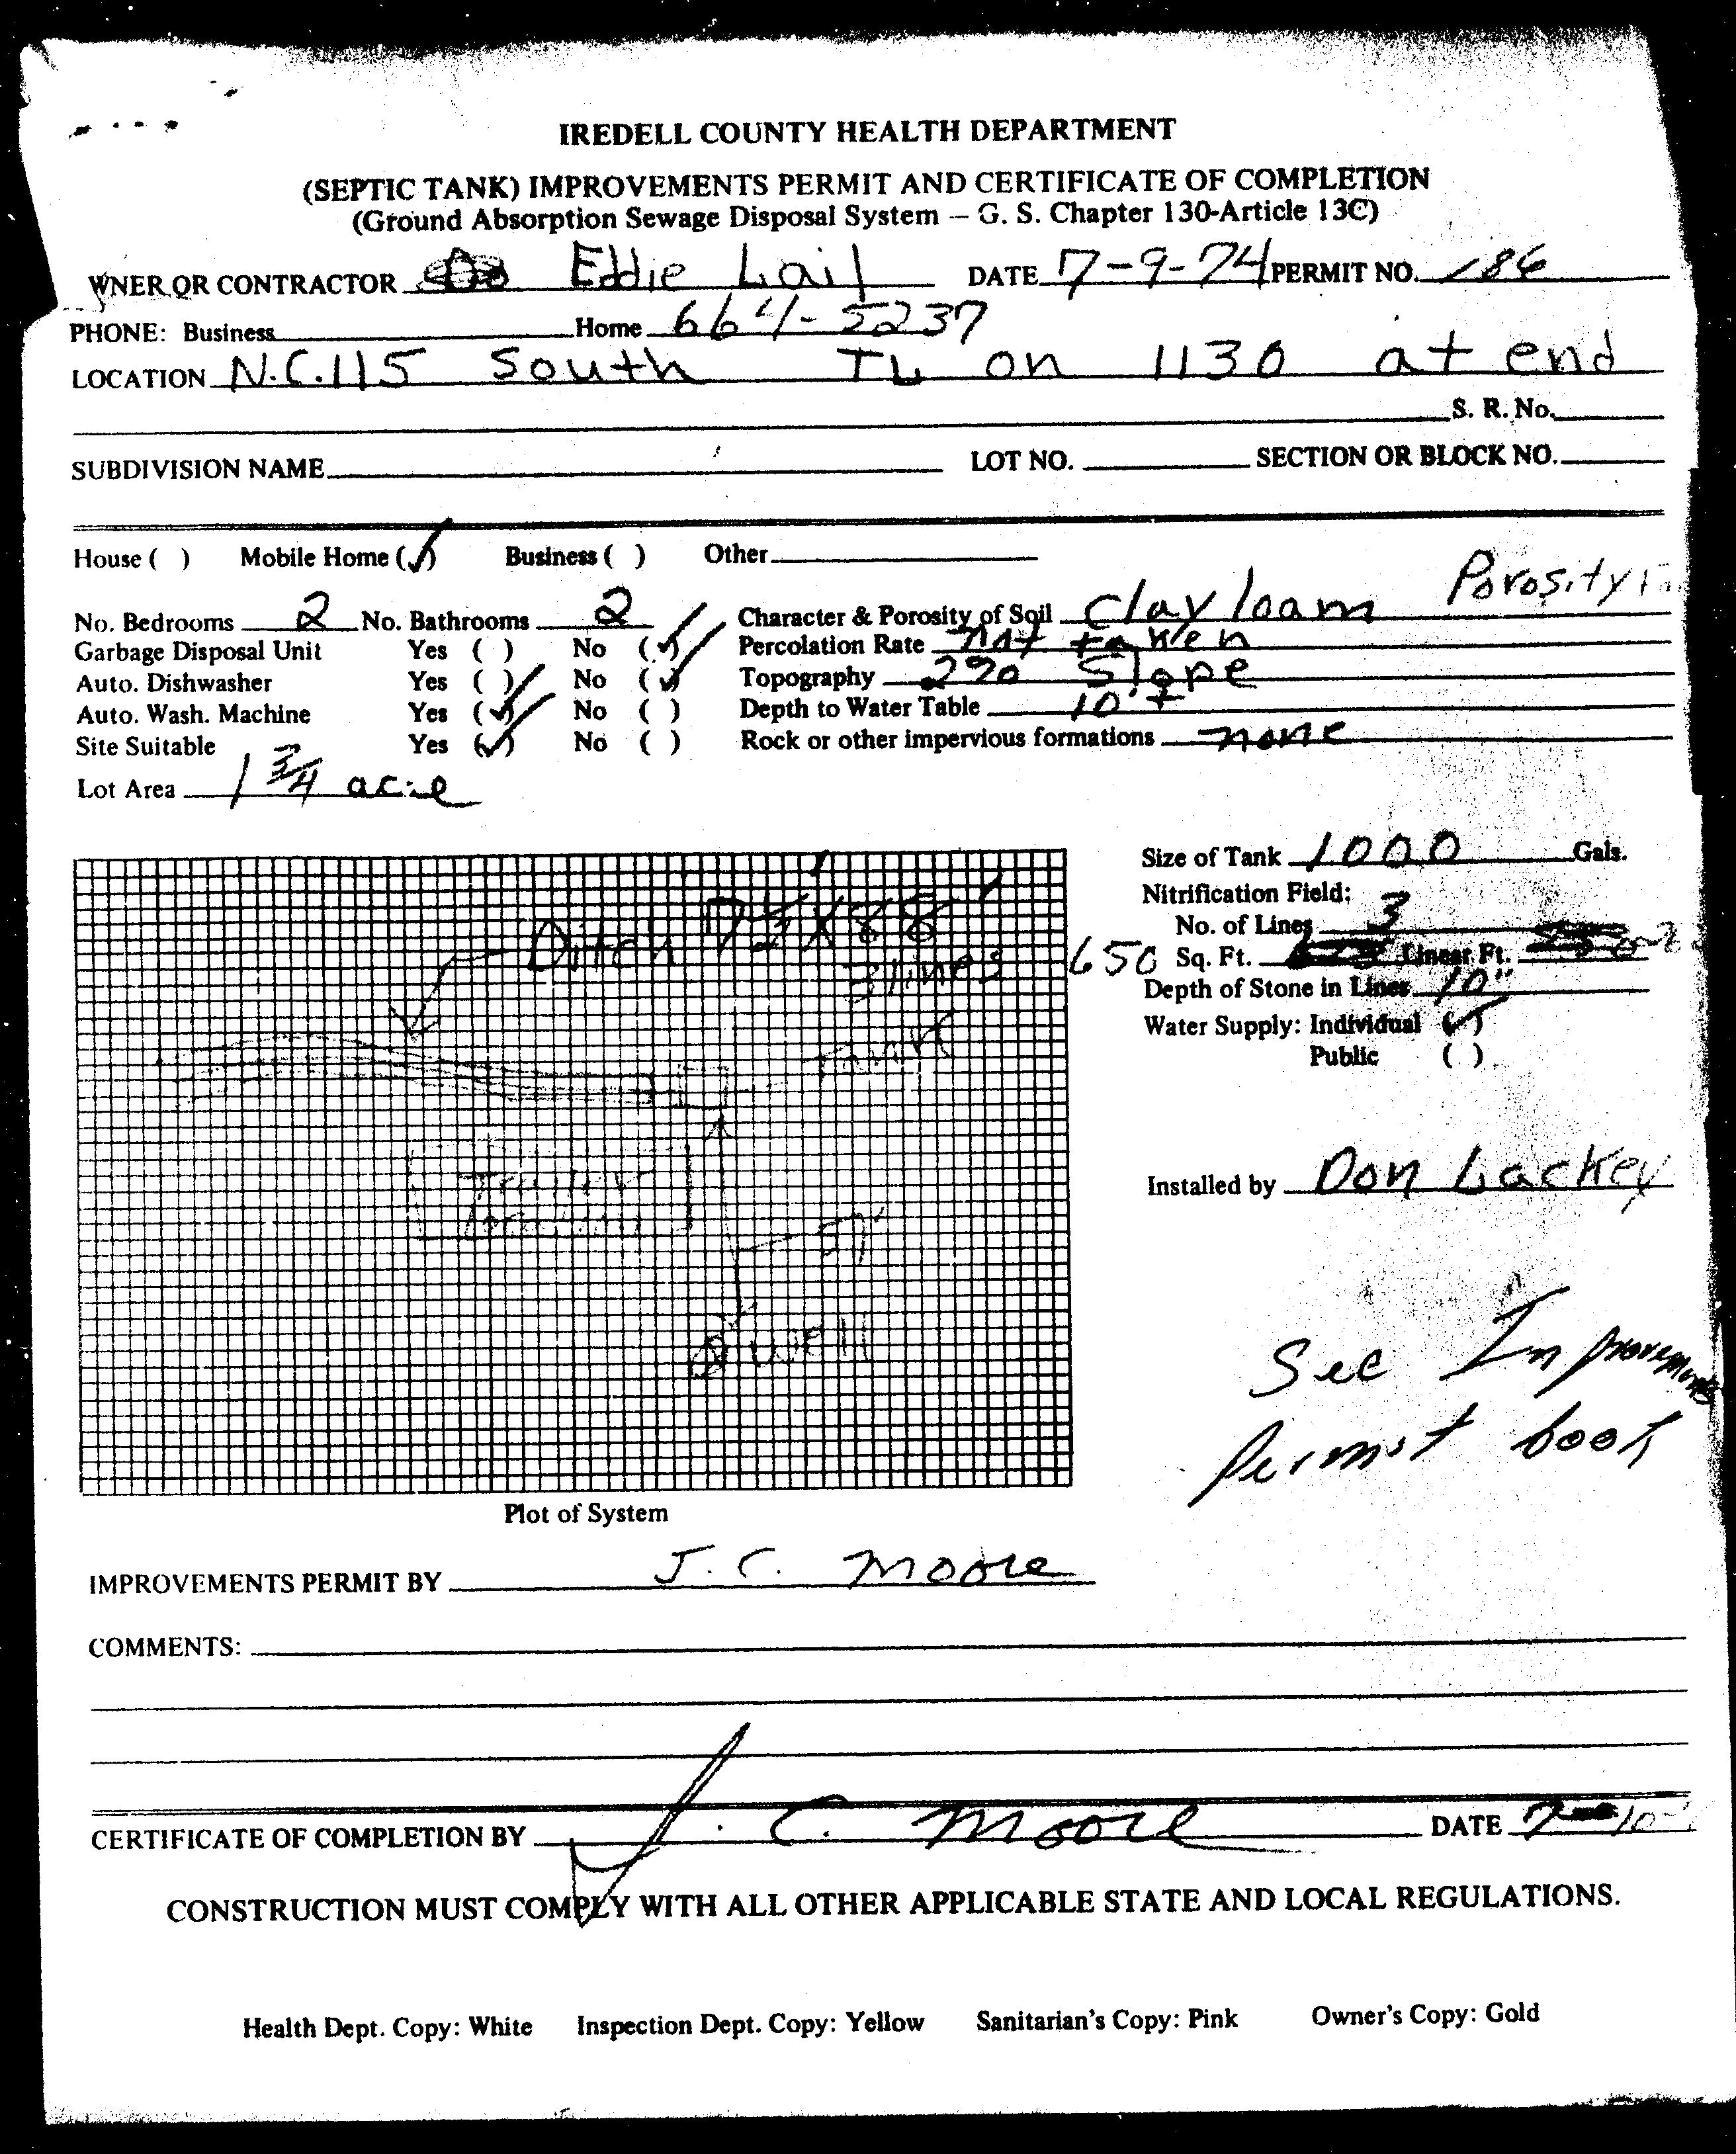 IREDELL COUNTY HEALTH DEPARTMENT
(SEPTIC TANK) IMPROVEMENTS PERMIT AND CERTIFICATE OF COMPLETION
(Ground Absorption Sewage Disposal System – G. S. Chapter 130-Article 13C)
WNER OR CONTRACTOR Eddie Lail DATE 7-9-74 PERMIT NO. 186
PHONE: Business Home 664-5237
LOCATION N.C.115 South TL on 1130 at end
S. R. No.
SUBDIVISION NAME LOT NO. SECTION OR BLOCK NO.
House ( ) Mobile Home (✓) Business ( ) Other
No. Bedrooms 2 No. Bathrooms 2 Character & Porosity of Soil Clay loam Porosity
Garbage Disposal Unit Yes ( ) No (✓) Percolation Rate not taken
Auto. Dishwasher Yes ( ) No (✓) Topography 2% Slope
Auto. Wash. Machine Yes (✓) No ( ) Depth to Water Table 10'+
Site Suitable Yes (✓) No ( ) Rock or other impervious formations none
Lot Area 1 3/4 acre
Size of Tank 1000 Gals.
Nitrification Field:
No. of Lines 3
650 Sq. Ft. Linear Ft.
Depth of Stone in Lines 10"
Water Supply: Individual (✓)
Public ( )
Ditch
3 lines
Tank
Trailer
Well
Installed by Don Lackey
See Improvements
Permit book
Plot of System
IMPROVEMENTS PERMIT BY J. C. Moore
COMMENTS:
CERTIFICATE OF COMPLETION BY J. C. Moore DATE
CONSTRUCTION MUST COMPLY WITH ALL OTHER APPLICABLE STATE AND LOCAL REGULATIONS.
Health Dept. Copy: White Inspection Dept. Copy: Yellow Sanitarian's Copy: Pink Owner's Copy: Gold